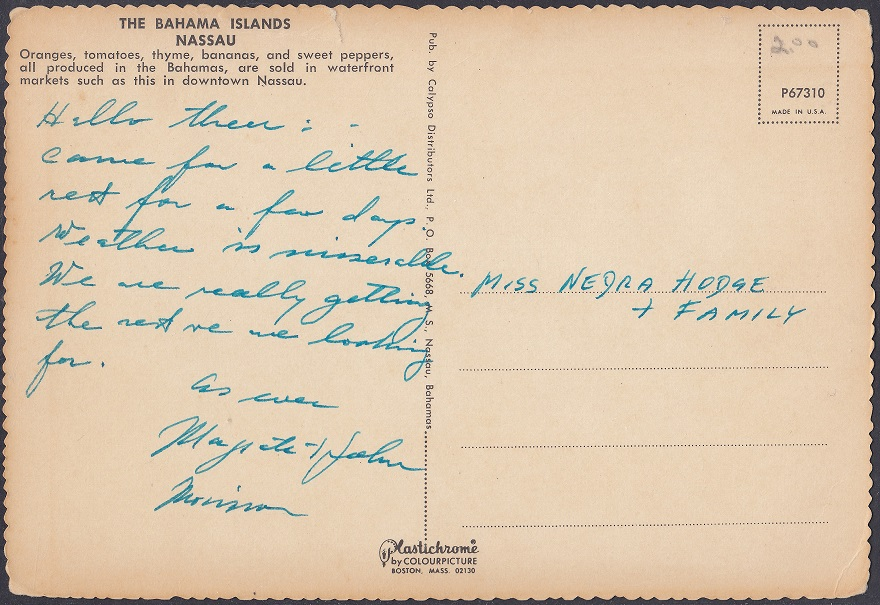 THE BAHAMA ISLANDS
NASSAU
Oranges, tomatoes, thyme, bananas, and sweet peppers,
all produced in the Bahamas, are sold in waterfront
markets such as this in downtown Nassau.
Hello there : -
Came for a little
rest for a few days.
Weather is misserable.
We are really getting
the rest we are looking
for.
As ever
+ John
Morison
Pub. by Calypso Distributors Ltd., P. O. Box 5668, M. S., Nassau, Bahamas
2.00
P67310
MADE IN U.S.A.
MISS NEDRA HODGE
+ FAMILY
Plastichrome®
by COLOURPICTURE
BOSTON, MASS. 02130